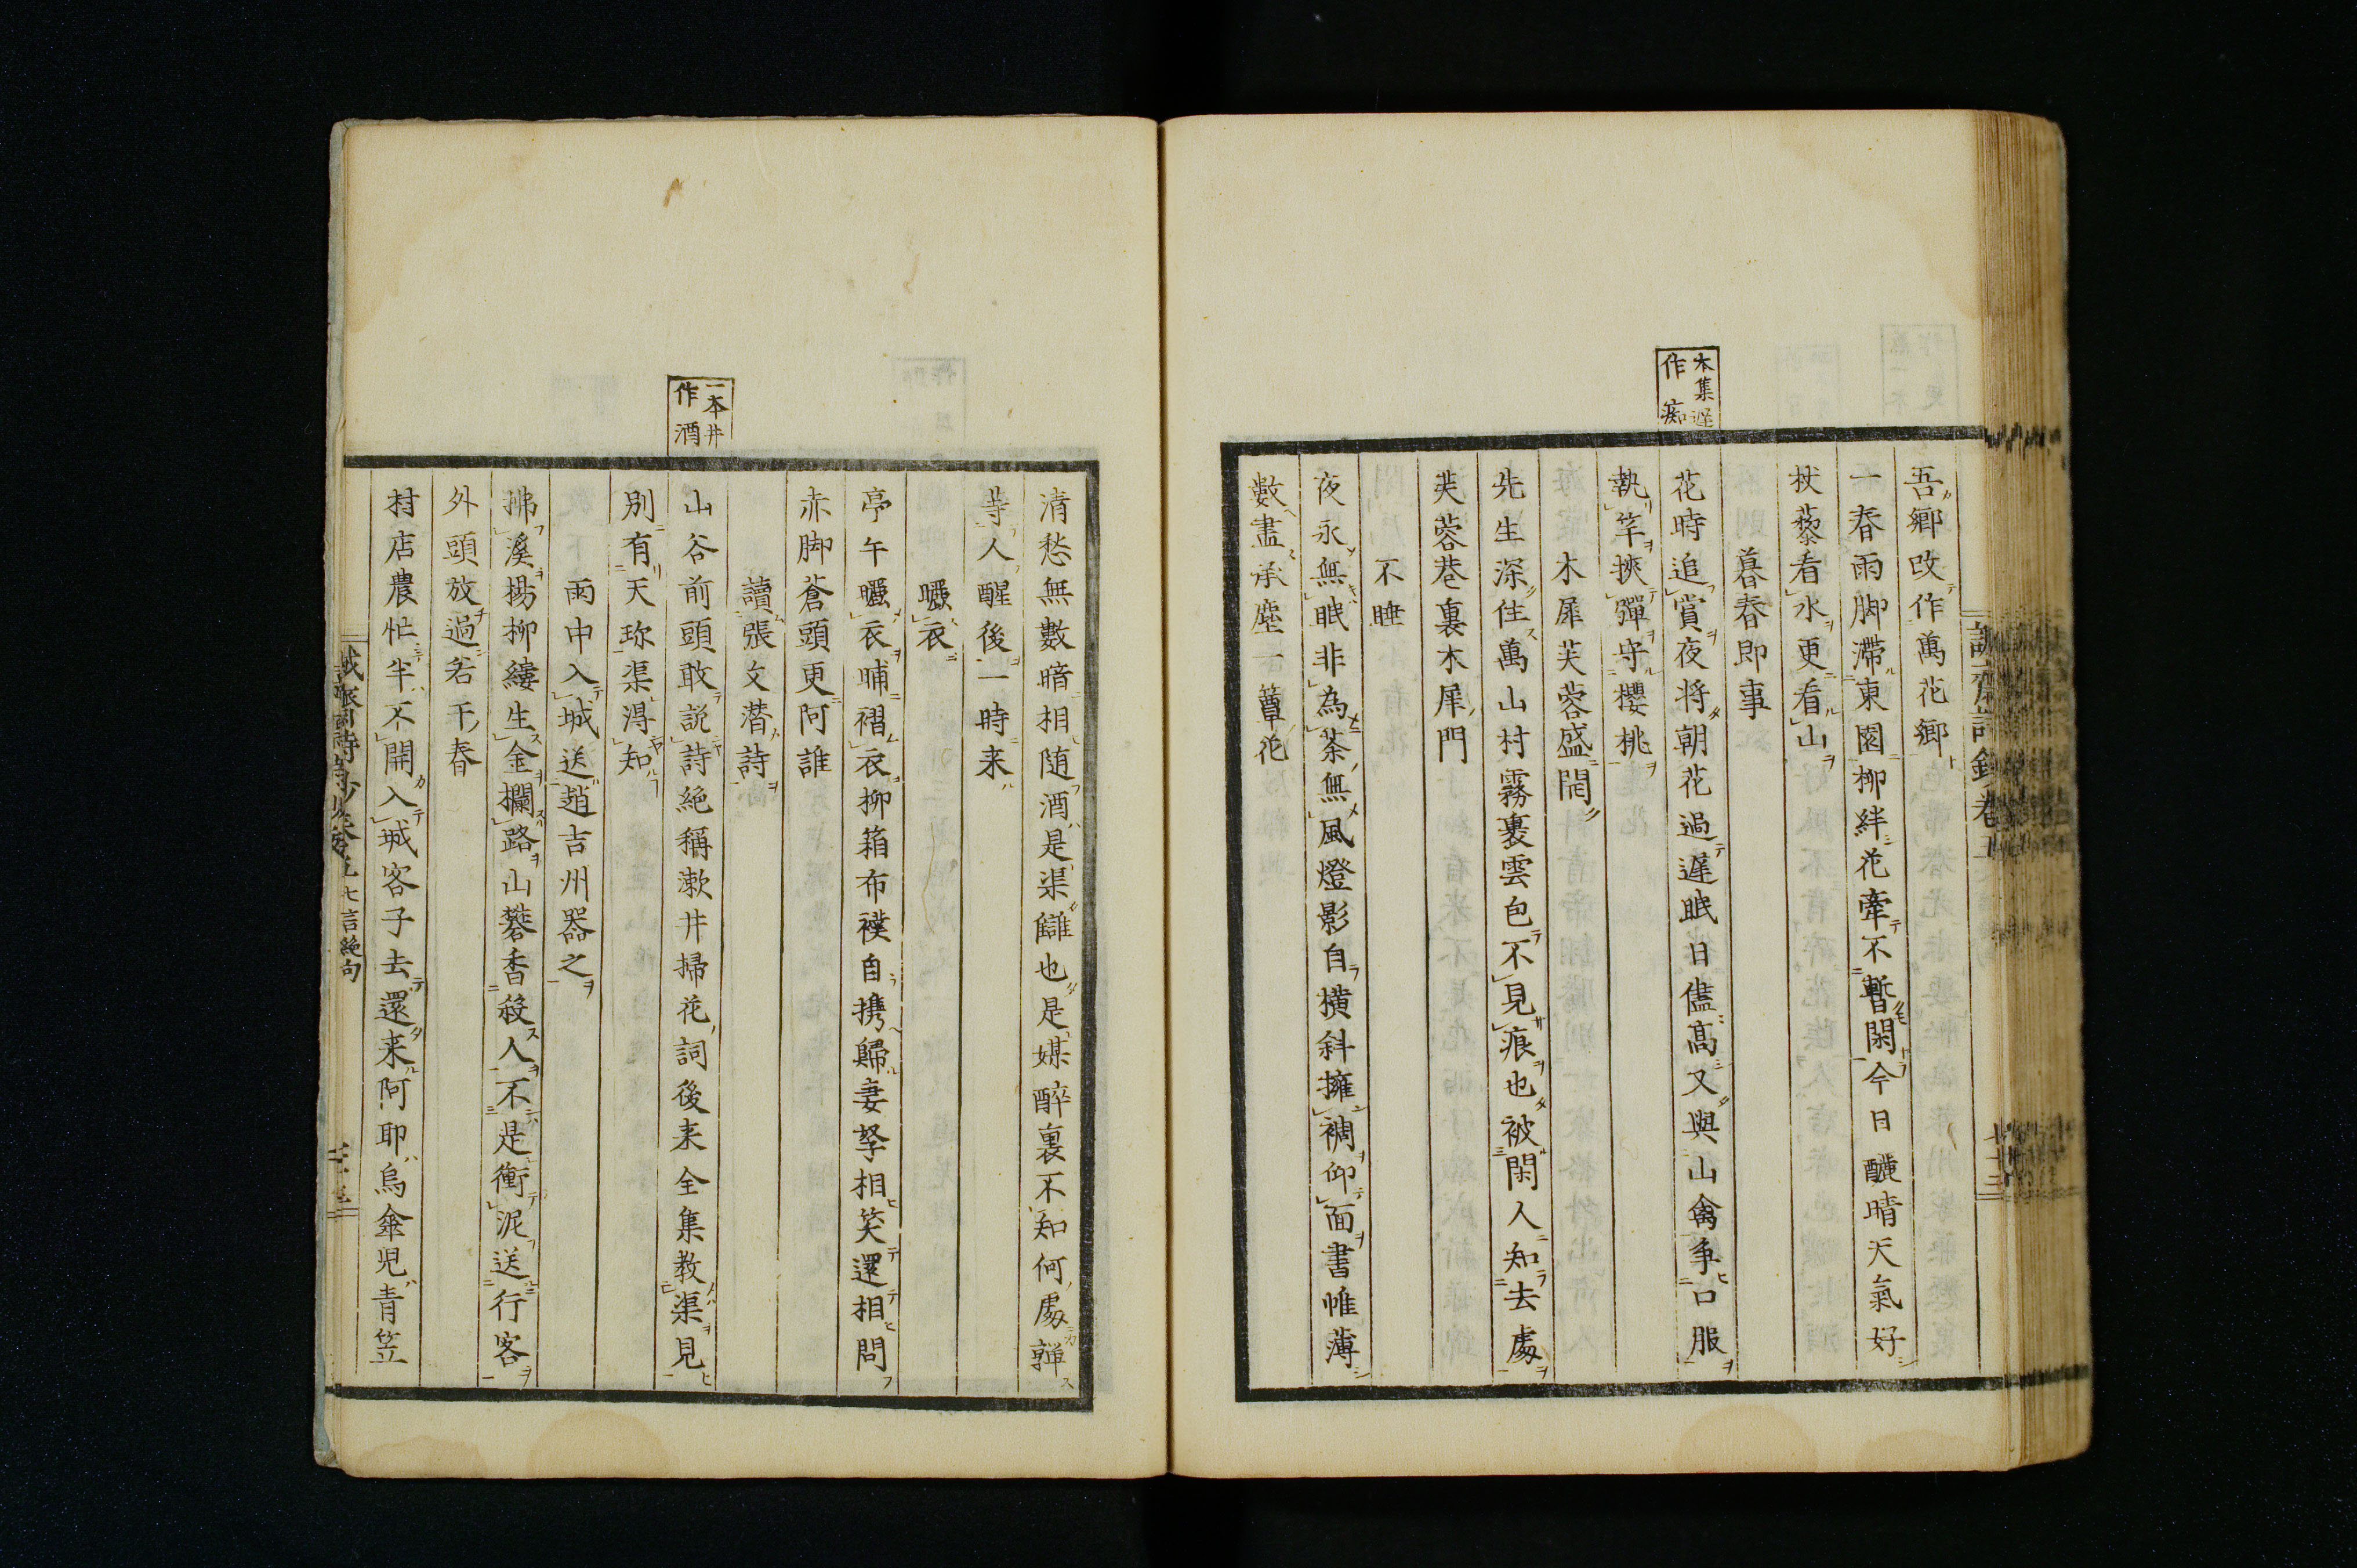 吾郷改作萬花郷
一春雨脚滯東園柳絆花牽不暫閑今日醲晴天氣好
杖藜看水更看山
暮春即事
花時追賞夜将朝花過遅眠日儘髙又與山禽争口服
執竿挾彈守櫻桃
木犀芙蓉盛開
先生深住萬山村霧裹雲包不見痕也被閑人知去處
芙蓉巷裏木犀門
不睡
夜永無眠非為茶無風燈影自横斜擁裯仰面書帷薄
數盡承塵一簟花
本集遅
作痴
清愁無數暗相随酒是渠讎也是媒醉裏不知何處躱
等人醒後一時来
曬衣
亭午曬衣晡褶衣柳箱布襆自携歸妻孥相笑還相問
赤脚蒼頭更阿誰
讀張文潜詩
山谷前頭敢説詩絶稱漱井掃花詞後来全集教渠見
別有天珎渠淂知
雨中入城送趙吉州器之
拂溪揚柳縷生金攔路山礬香殺人不是衝泥送行客
外頭放過若干春
村店農忙半不開入城客子去還来阿耶烏傘児青笠
一本井
作酒
七言絶句